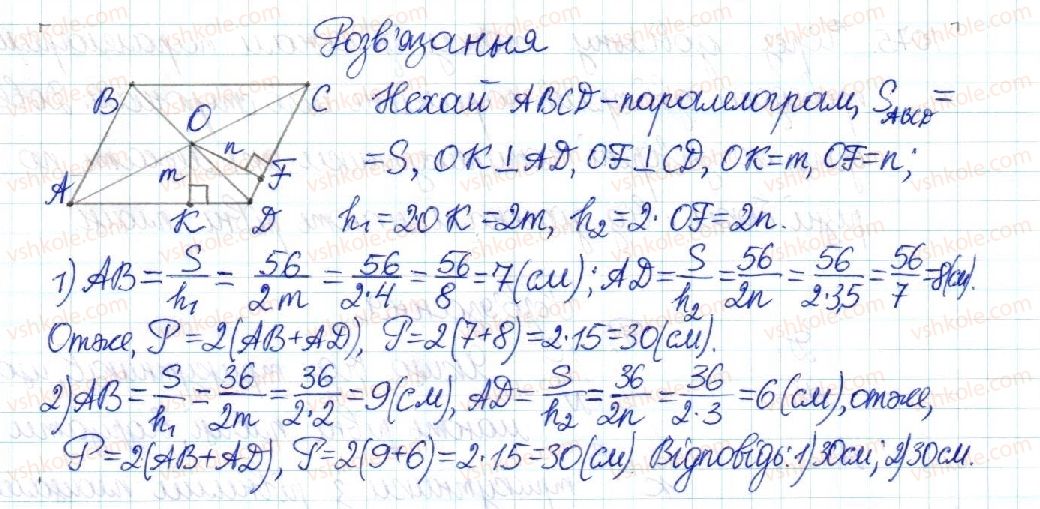 Розв'язання
B C O n m F A K D
Нехай ABCD-паралелограм, S_ABCD =
= S, OK⊥AD, OF⊥CD, OK=m, OF=n;
h₁=2OK=2m, h₂=2·OF=2n.
1) AB = S/h₁ = 56/2m = 56/2·4 = 56/8 = 7(см); AD = S/h₂ = 56/2n = 56/2·3,5 = 56/7 = 8(см).
Отже, P=2(AB+AD), P=2(7+8)=2·15=30(см).
2) AB = S/h₁ = 36/2m = 36/2·2 = 9(см), AD = S/h₂ = 36/2n = 36/2·3 = 6(см), отже,
P=2(AB+AD), P=2(9+6)=2·15=30(см). Відповідь: 1) 30см; 2) 30см.